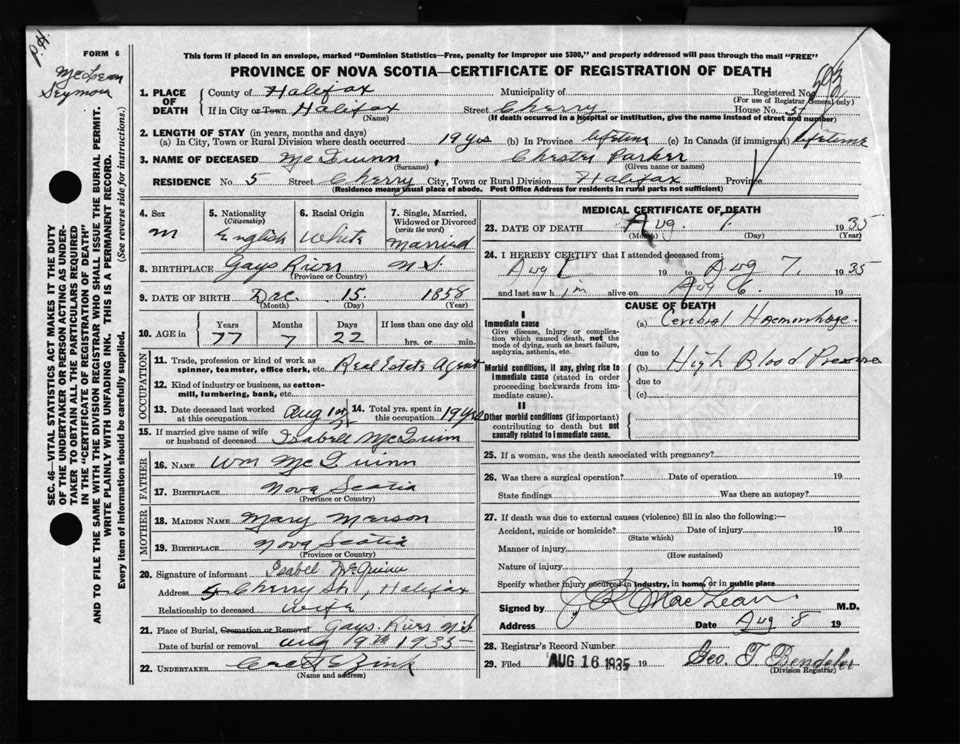 P.H.
McLean
Seymour
FORM 6
This form if placed in an envelope, marked "Dominion Statistics—Free, penalty for improper use $300," and properly addressed will pass through the mail "FREE"
PROVINCE OF NOVA SCOTIA—CERTIFICATE OF REGISTRATION OF DEATH
SEC. 46—VITAL STATISTICS ACT MAKES IT THE DUTY
OF THE UNDERTAKER OR PERSON ACTING AS UNDER-
TAKER TO OBTAIN ALL THE PARTICULARS REQUIRED
IN THE "CERTIFICATE OF REGISTRATION OF DEATH"
AND TO FILE THE SAME WITH THE DIVISION REGISTRAR WHO SHALL ISSUE THE BURIAL PERMIT.
WRITE PLAINLY WITH UNFADING INK. THIS IS A PERMANENT RECORD.
Every item of information should be carefully supplied. (See reverse side for instructions.)
1. PLACE OF DEATH County of Halifax Municipality of Registered No.
(For use of Registrar General only)
If in City or Town Halifax Street Cherry House No. 5
(Name) (If death occurred in a hospital or institution, give the name instead of street and number)
2. LENGTH OF STAY (in years, months and days)
(a) In City, Town or Rural Division where death occurred 19 yrs (b) In Province lifetime (c) In Canada (if immigrant) lifetime
3. NAME OF DECEASED McQuinn, Chester Parker
(Surname) (Given name or names)
RESIDENCE No. 5 Street Cherry City, Town or Rural Division Halifax Province
(Residence means usual place of abode. Post Office Address for residents in rural parts not sufficient)
4. Sex
m
5. Nationality
(Citizenship)
English
6. Racial Origin
White
7. Single, Married,
Widowed or Divorced
(write the word)
Married
8. BIRTHPLACE Gays River N.S.
(Province or Country)
9. DATE OF BIRTH Dec. 15. 1858
(Month) (Day) (Year)
10. AGE in Years Months Days If less than one day old
77 7 22 hrs. or min.
OCCUPATION
11. Trade, profession or kind of work as
spinner, teamster, office clerk, etc. Real Estate Agent
12. Kind of industry or business, as cotton-
mill, lumbering, bank, etc.
13. Date deceased last worked
at this occupation Aug 1st
14. Total yrs. spent in
this occupation 19 yrs
15. If married give name of wife
or husband of deceased Isabell McQuinn
FATHER
16. NAME Wm McQuinn
17. BIRTHPLACE Nova Scotia
(Province or Country)
MOTHER
18. MAIDEN NAME Mary Marson
19. BIRTHPLACE Nova Scotia
(Province or Country)
20. Signature of informant Isabel McQuinn
Address 5 Cherry St, Halifax
Relationship to deceased wife
21. Place of Burial, Cremation or Removal Gays River N.S
Date of burial or removal Aug 19th 1935
22. UNDERTAKER Zink
(Name and address)
MEDICAL CERTIFICATE OF DEATH
23. DATE OF DEATH Aug. 7. 1935
(Month) (Day) (Year)
24. I HEREBY CERTIFY that I attended deceased from:
Aug 19 to Aug 7. 1935
and last saw him alive on Aug 6. 19
CAUSE OF DEATH
I
Immediate cause
Give disease, injury or complica-
tion which caused death, not the
mode of dying, such as heart failure,
asphyxia, asthenia, etc.
(a) Cerebral Haemorrhage.
due to
Morbid conditions, if any, giving rise to
immediate cause (stated in order
proceeding backwards from im-
mediate cause).
(b) High Blood Pressure
due to
(c)
II
Other morbid conditions (if important)
contributing to death but not
causally related to immediate cause.
25. If a woman, was the death associated with pregnancy?
26. Was there a surgical operation? Date of operation 19
State findings Was there an autopsy?
27. If death was due to external causes (violence) fill in also the following:—
Accident, suicide or homicide? Date of injury 19
(State which)
Manner of injury
(How sustained)
Nature of injury
Specify whether injury occurred in industry, in home, or in public place
Signed by MacLean M.D.
Address Date Aug 8 19
28. Registrar's Record Number
29. Filed AUG 16 1935 19 Geo. T. Bendeler
(Division Registrar)